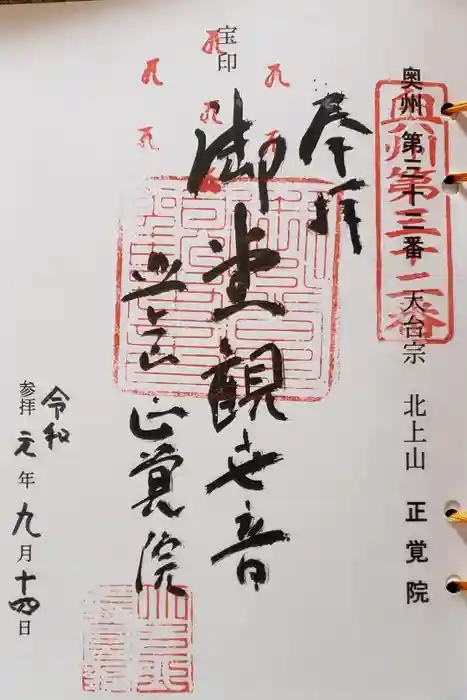 奥州 第三十二番 天台宗 北上山 正覚院
奥州第三十二番
奉拝
宝印
御堂観世音
北上山正覚院
令和
参拝 元年九月十四日